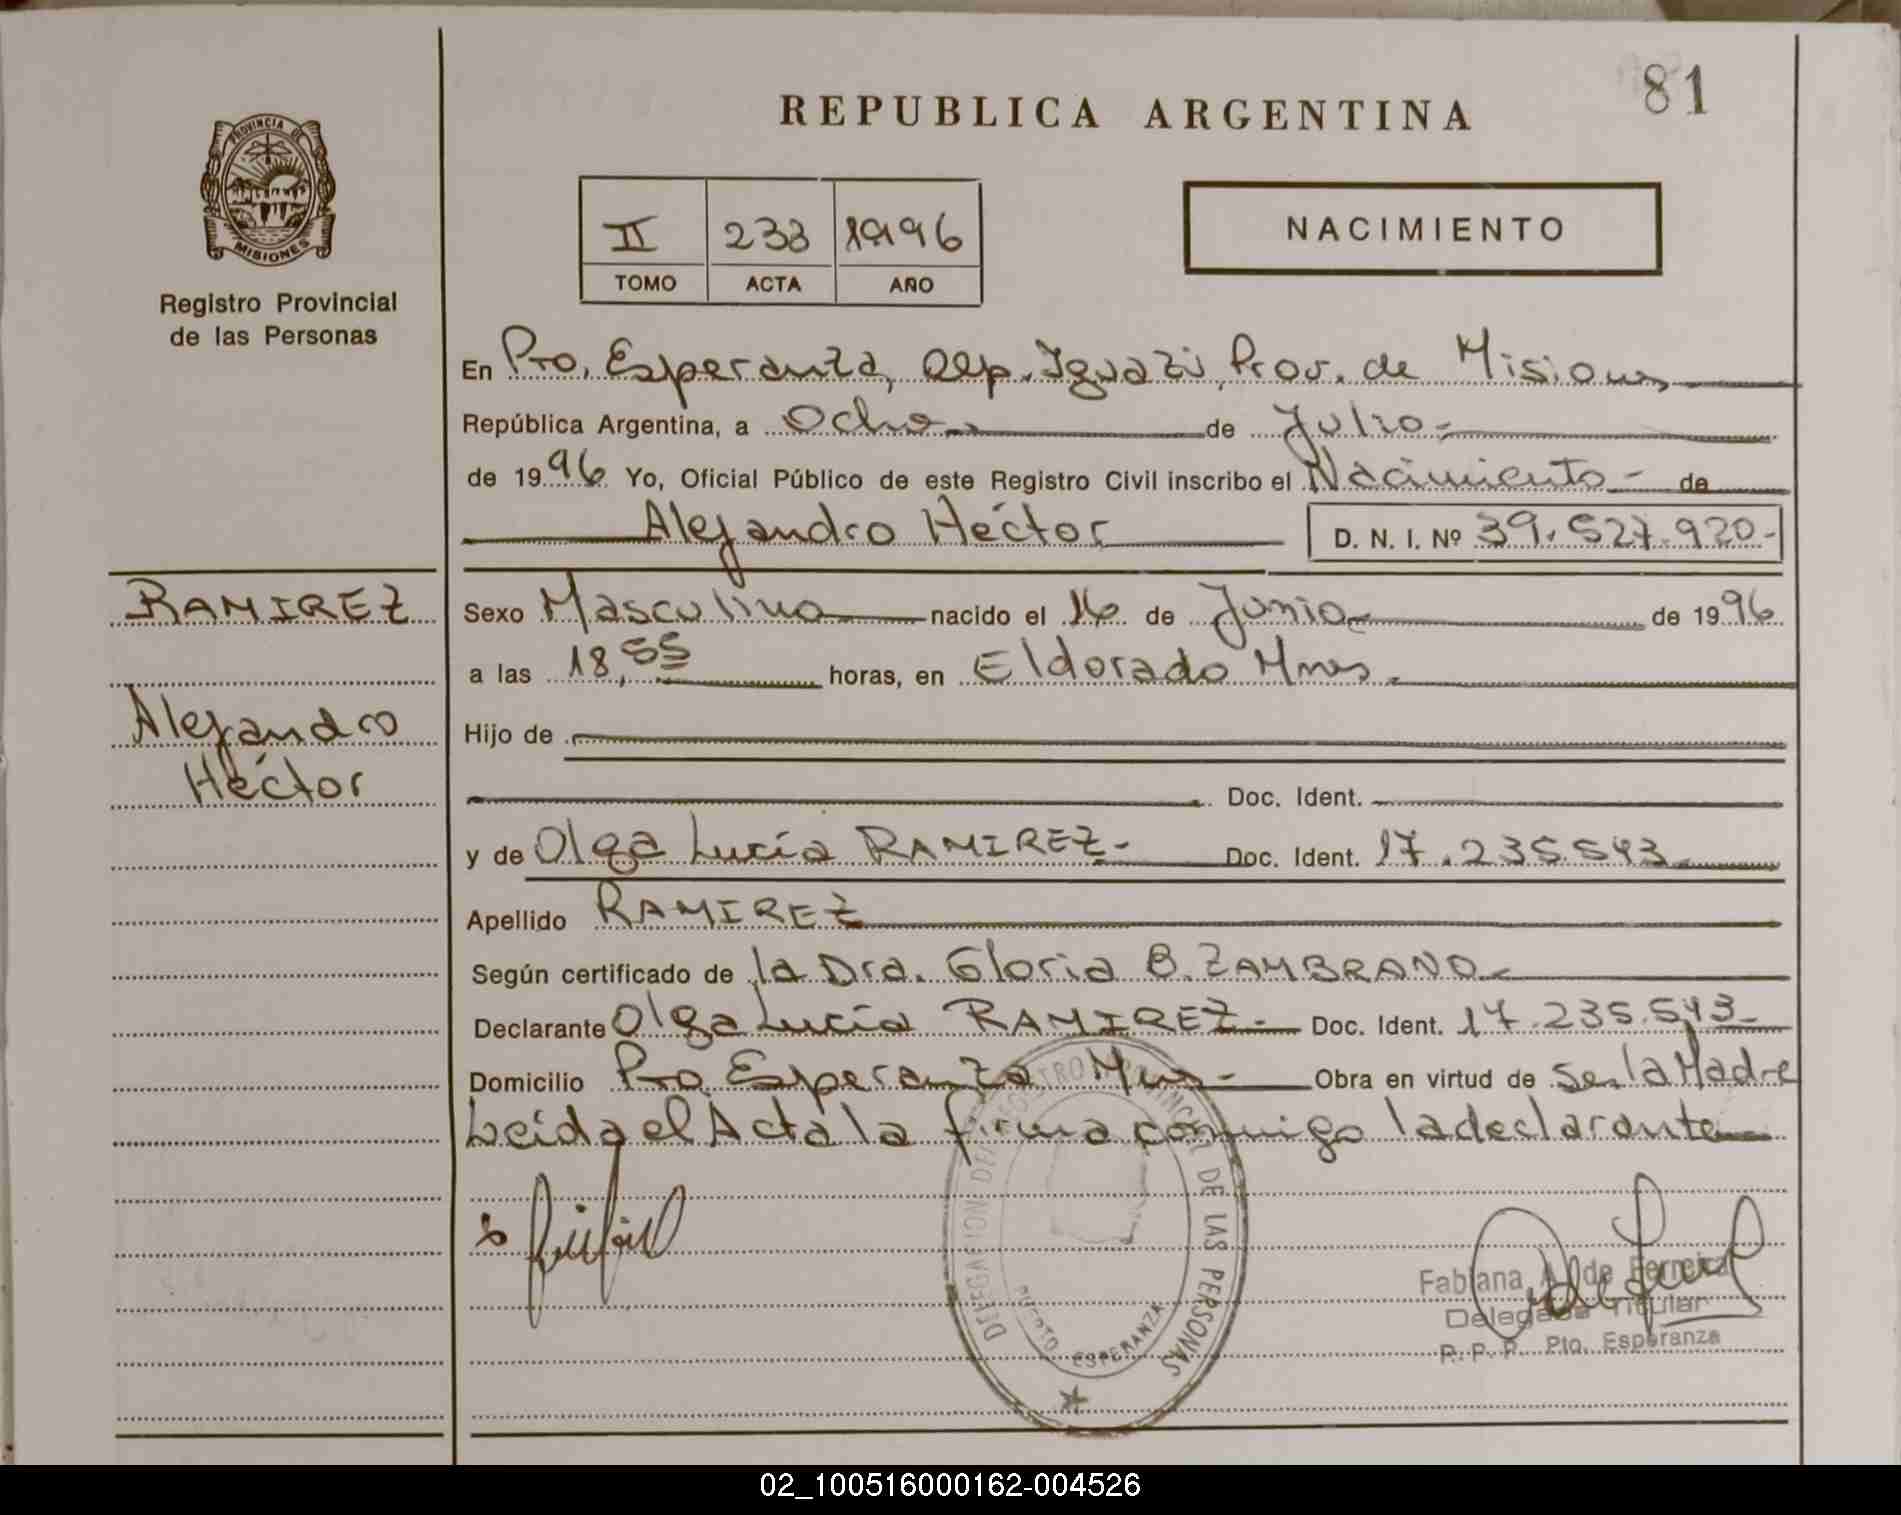 81
REPUBLICA ARGENTINA
PROVINCIA DE
MISIONES
Registro Provincial
de las Personas
II 233 1996
TOMO ACTA AÑO
NACIMIENTO
En Pto. Esperanza, Dep. Iguazú, Prov. de Misiones
República Argentina, a Ocho de Julio
de 1996 Yo, Oficial Público de este Registro Civil inscribo el Nacimiento - de
Alejandro Héctor D. N. I. Nº 39.527.920-
RAMIREZ
Alejandro
Héctor
Sexo Masculino nacido el 16 de Junio de 1996
a las 18,55 horas, en Eldorado Mnes.
Hijo de
Doc. Ident.
y de Olga Lucía RAMIREZ- Doc. Ident. 17.235.543
Apellido RAMIREZ
Según certificado de la Dra. Gloria B. ZAMBRANO
Declarante Olga Lucía RAMIREZ- Doc. Ident. 17.235.543
Domicilio Pto Esperanza Mnes- Obra en virtud de Ser la Madre
Leída el Acta la firma conmigo la declarante
DELEGACION DEL REGISTRO PROVINCIAL DE LAS PERSONAS
PUERTO ESPERANZA
Fabiana A. de Ferreira
Delegada Titular
R. P. P. Pto. Esperanza
02_100516000162-004526